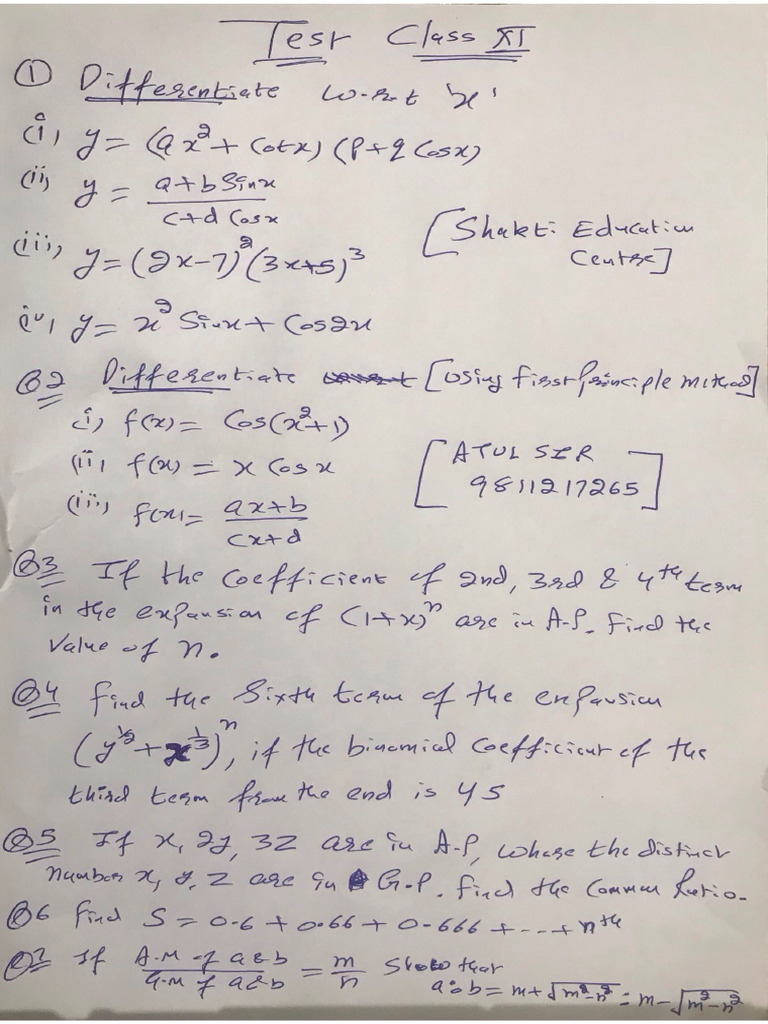 Test Class XI
① Differentiate w.r.t 'x'
(i) y = (ax² + Cotx) (P+q Cosx)
(ii) y = a+b Sinx / c+d Cosx
[Shakti Education Centre]
(iii) y = (2x-7)² (3x+5)³
iv) y = x² Sinx + Cos2x
Q2 Differentiate [Using first Principle method]
i) f(x) = Cos(x²+1)
(ii) f(x) = x Cosx
[ATUL SIR 9811217265]
(iii) f(x) = ax+b / cx+d
Q3 If the Coefficient of 2nd, 3rd & 4th term
in the expansion of (1+x)ⁿ are in A.P. Find the
Value of n.
Q4 find the Sixth term of the expansion
(y^½ + x^⅓)ⁿ, if the binomial Coefficient of the
third term from the end is 45
Q5 If x, 2y, 3z are in A.P, where the distinct
number x, y, z are in G.P. find the Common Ratio.
Q6 find S = 0.6 + 0.66 + 0.666 + --- + nth
Q7 If A.M of a&b / G.M of a&b = m/n Show that
a:b = m+√m²-n² : m-√m²-n²